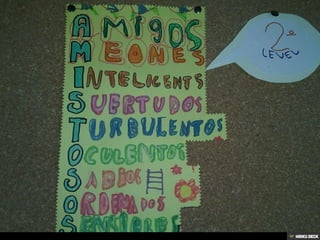 AMigOS
MEONES
INTELIGENTS
SUERTUDOS
TURBULENTOS
OCULENTOS
SABIOS
ORDENADOS
S
2º
LEVEL